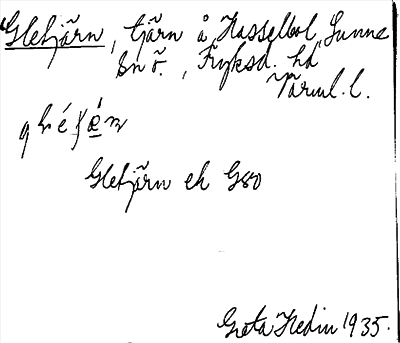 Gletjärn, tjärn å Hasselbol, Sunne
sn ö., Fryksd. hd
Värml. l.
Gletjärn ek G80
Greta Hedin 1935.